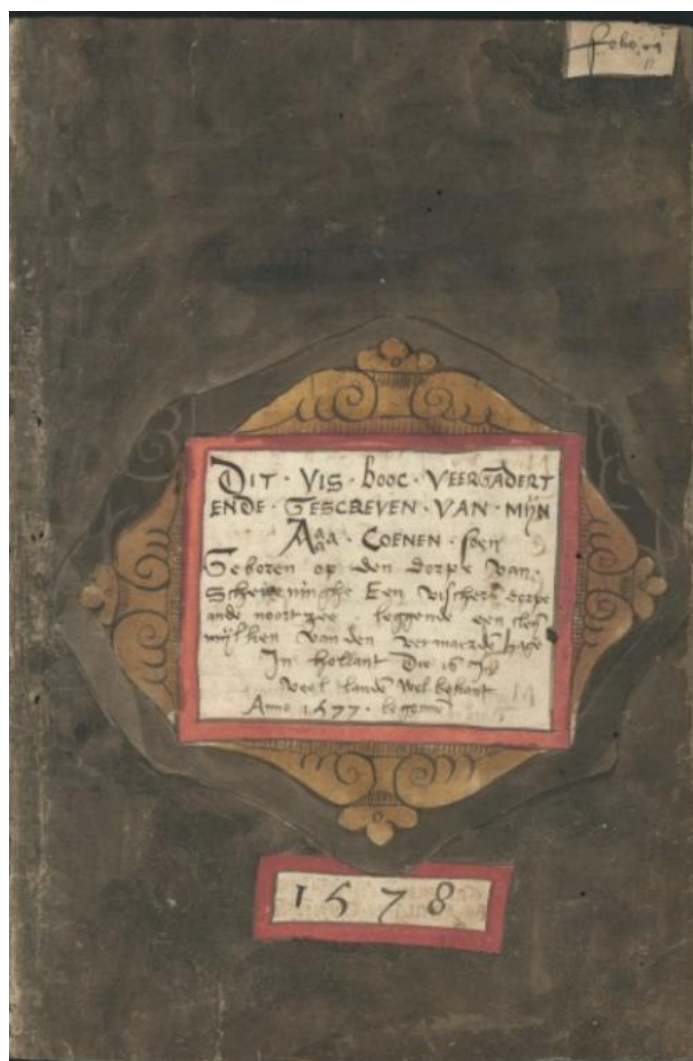 folio
DIT · VIS · booc · VEERGADERT
ENDE · GESCREVEN · VAN · MIJN
· COENEN · soen
Geboren op den dorpe van
Scheveninghe Een visschers dorpe
ande noort zee leggende een cleyn
mijlken van den vermaerden haghe
In hollant Die is In
veel landen Wel bekant
Anno 1577 · begonnen
1578